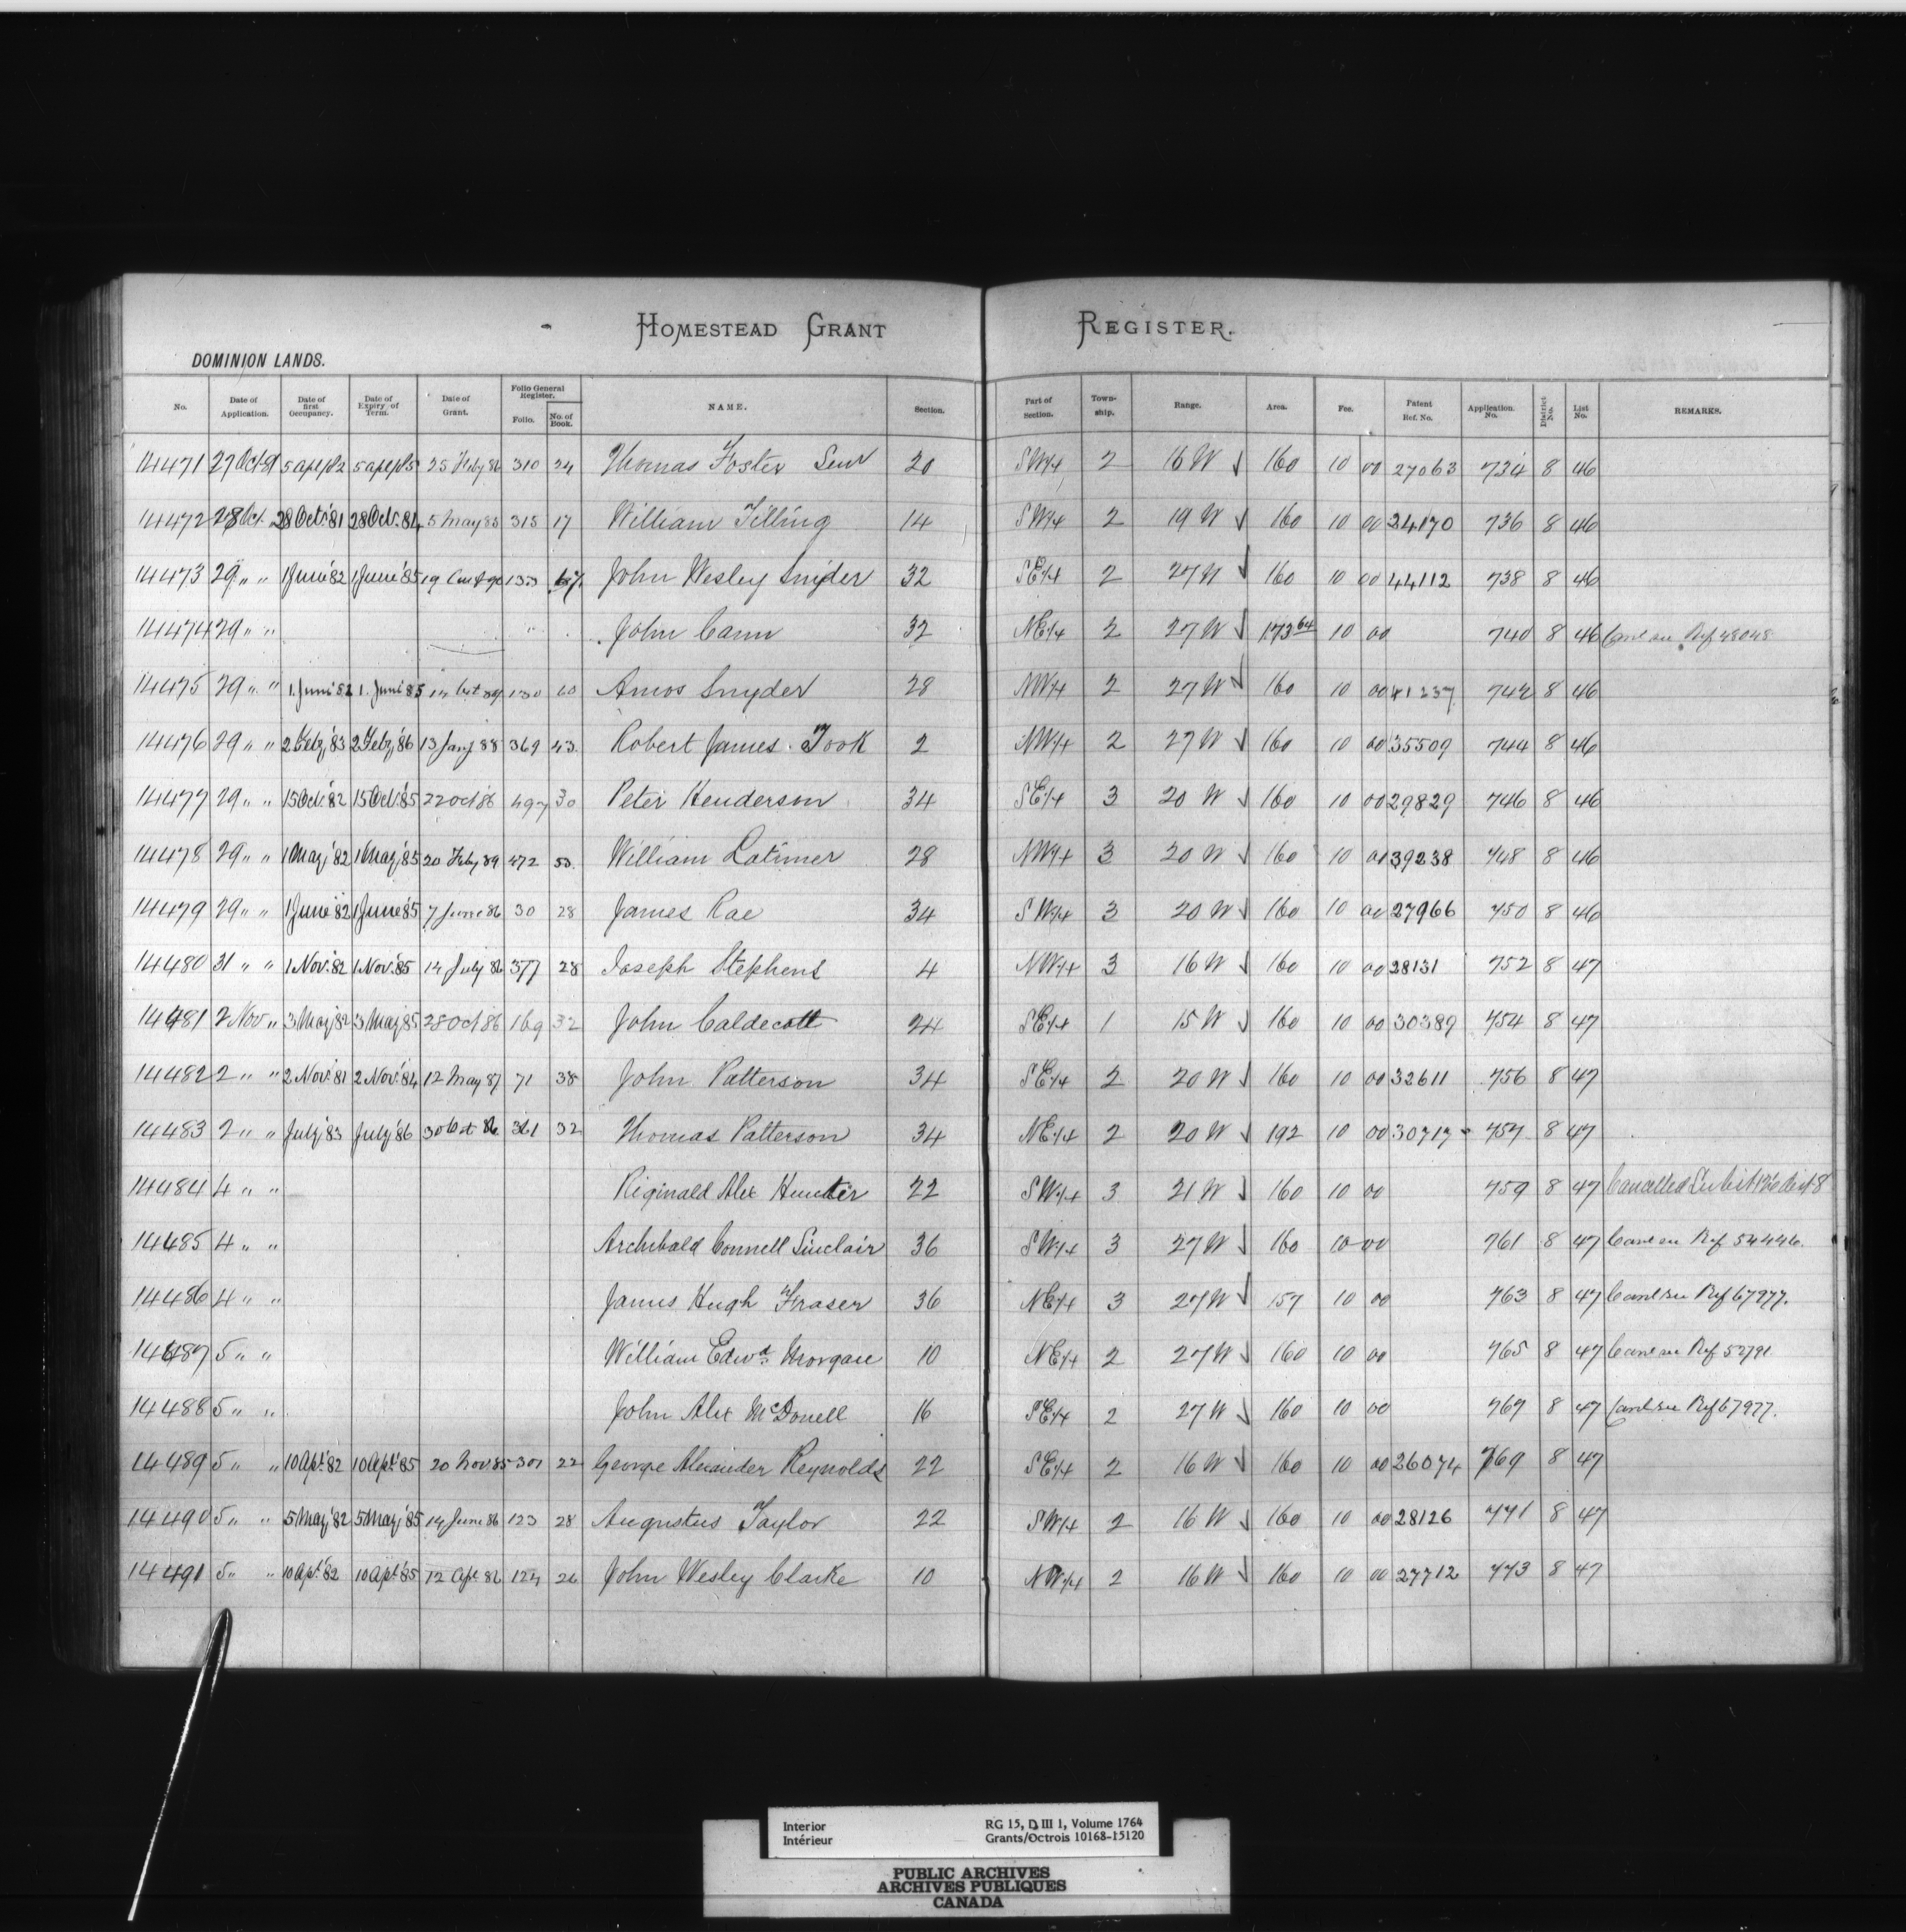 HOMESTEAD GRANT REGISTER.
DOMINION LANDS.
No. Date of Application. Date of first Occupancy. Date of Expiry of Term. Date of Grant. Folio General Register. Folio. No. of Book. NAME. Section. Part of Section. Township. Range. Area. Fee. Patent Ref. No. Application No. District No. List No. REMARKS.
14471 27 Oct 81 5 apl 82 5 apl 85 25 Feby 86 310 24 Thomas Foster Senr 20 SW1/4 2 16 W ✓ 160 10 00 27063 734 8 46
14472 28 Oct. 28 Oct. '81 28 Oct. 84 5 May 85 315 17 William Tilling 14 SW1/4 2 19 W ✓ 160 10 00 24170 736 8 46
14473 29 " " 1 June '82 1 June '85 19 90 133 67 John Wesley Snyder 32 SE1/4 2 27 W ✓ 160 10 00 44112 738 8 46
14474 29 " " John Cann 32 NE1/4 2 27 W ✓ 173 64 10 00 740 8 46 Canl see Ref 48048
14475 29 " " 1. June 82 1. June '85 14 Oct 89 130 60 Amos Snyder 28 NW1/4 2 27 W ✓ 160 10 00 41237 742 8 46
14476 29 " " 2 Feby '83 2 Feby '86 13 Jany 88 369 43 Robert James Took 2 NW1/4 2 27 W ✓ 160 10 00 35509 744 8 46
14477 29 " " 15 Oct. '82 15 Oct. '85 22 Oct 86 497 30 Peter Henderson 34 SE1/4 3 20 W ✓ 160 10 00 29829 746 8 46
14478 29 " " 1 May '82 1 May '85 20 Feby 89 472 50 William Latimer 28 NW1/4 3 20 W ✓ 160 10 00 39238 748 8 46
14479 29 " " 1 June '82 1 June '85 7 June 86 30 28 James Rae 34 SW1/4 3 20 W ✓ 160 10 00 27966 750 8 46
14480 31 " " 1 Nov. '82 1 Nov. '85 14 July 86 377 28 Joseph Stephens 4 NW1/4 3 16 W ✓ 160 10 00 28131 752 8 47
14481 2 Nov " 3 May '82 3 May '85 28 Oct 86 169 32 John Caldecott 24 SE1/4 1 15 W ✓ 160 10 00 30389 754 8 47
14482 2 " " 2 Nov. '81 2 Nov. '84 12 May 87 71 38 John Patterson 34 SE1/4 2 20 W ✓ 160 10 00 32611 756 8 47
14483 2 " " July '83 July '86 30 Oct 86 361 32 Thomas Patterson 34 NE1/4 2 20 W ✓ 192 10 00 30717 757 8 47
14484 4 " " Riginald Alex Hunter 22 SW1/4 3 21 W ✓ 160 10 00 759 8 47 Cancelled See List 126 dist 8
14485 4 " " Archibald Connell Sinclair 36 SW1/4 3 27 W ✓ 160 10 00 761 8 47 Canl see Ref 54446.
14486 4 " " James Hugh Fraser 36 NE1/4 3 27 W ✓ 157 10 00 763 8 47 Canl see Ref 67977.
14487 5 " " William Edwd Morgan 10 NE1/4 2 27 W ✓ 160 10 00 765 8 47 Canl see Ref 52791
14488 5 " " John Alex McDonell 16 SE1/4 2 27 W ✓ 160 10 00 767 8 47 Canl see Ref 67977.
14489 5 " " 10 Apl. '82 10 Apl. '85 20 Nov 85 301 22 George Alexander Reynolds 22 SE1/4 2 16 W ✓ 160 10 00 26074 769 8 47
14490 5 " " 5 May '82 5 May '85 14 June 86 123 28 Augustus Taylor 22 SW1/4 2 16 W ✓ 160 10 00 28126 771 8 47
14491 5 " " 10 Apl. '82 10 Apl. '85 12 Apl 86 124 26 John Wesley Clarke 10 NW1/4 2 16 W ✓ 160 10 00 27712 773 8 47
Interior RG 15, D III 1, Volume 1764
Intérieur Grants/Octrois 10168-15120
PUBLIC ARCHIVES
ARCHIVES PUBLIQUES
CANADA